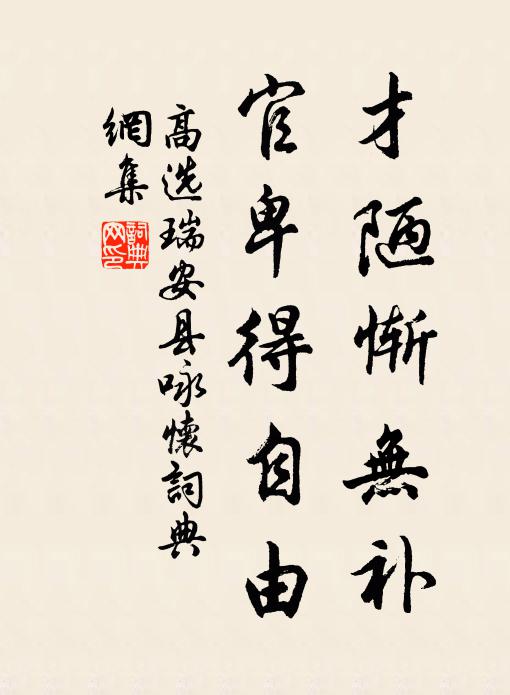 才陋惭無补
官卑得自由
高选瑞安县咏懷詞典
網集
詞典
网印